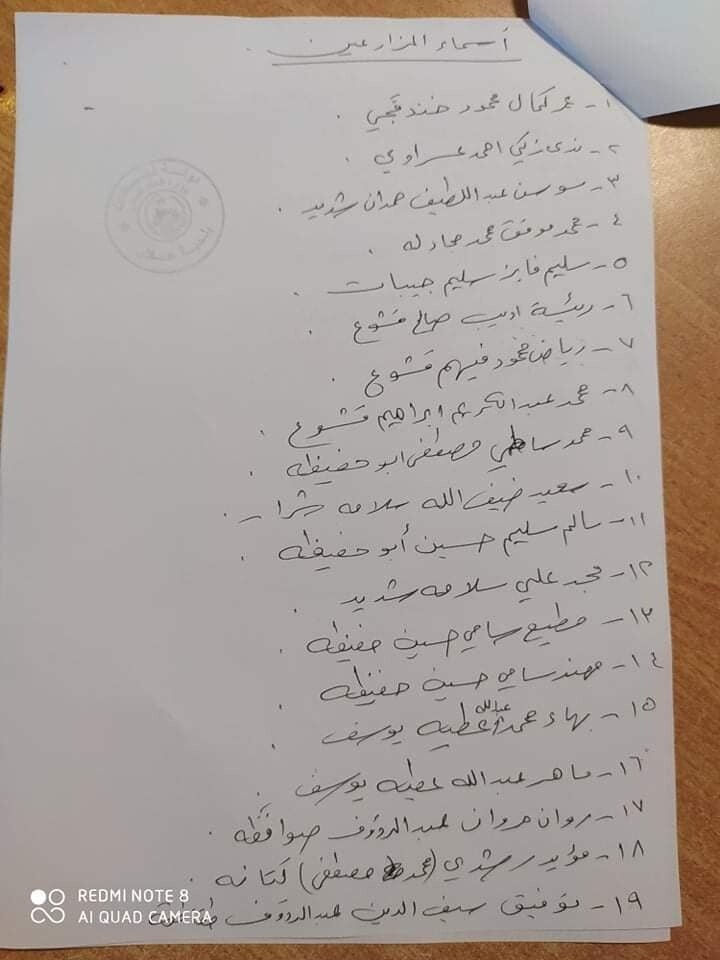 أسماء المزارعين
١- عمر كمال محمود خندقجي.
٢- ندى زكي احمد عسراوي.
٣- سوسن عبد اللطيف حمدان شديد.
٤- محمد موفق محمد
٥- سليم فايز سليم جيبات.
٦- اديب صالح قشوع.
٧- رياض محمود فهيم قشوع.
٨- محمد عبد الكريم ابراهيم قشوع.
٩- محمد مصطفى ابو حفيظه.
١٠- سعيد ضيف الله سلامه
١١- سالم سليم حسين أبو حفيظه.
١٢- محمد علي سلامه شديد.
١٣- مطيع سامي حسين حفيظه.
١٤- مهند سامي حسين حفيظه.
١٥- بهاء محمد عبدالله عطيه يوسف.
١٦- ماهر عبد الله عطيه يوسف.
١٧- روان مروان عبد الرؤوف صوافطه.
١٨- مؤيد رشدي (محمد مصطفى) كتانه.
١٩- توفيق سيف الدين عبد الرؤوف
REDMI NOTE 8
AI QUAD CAMERA